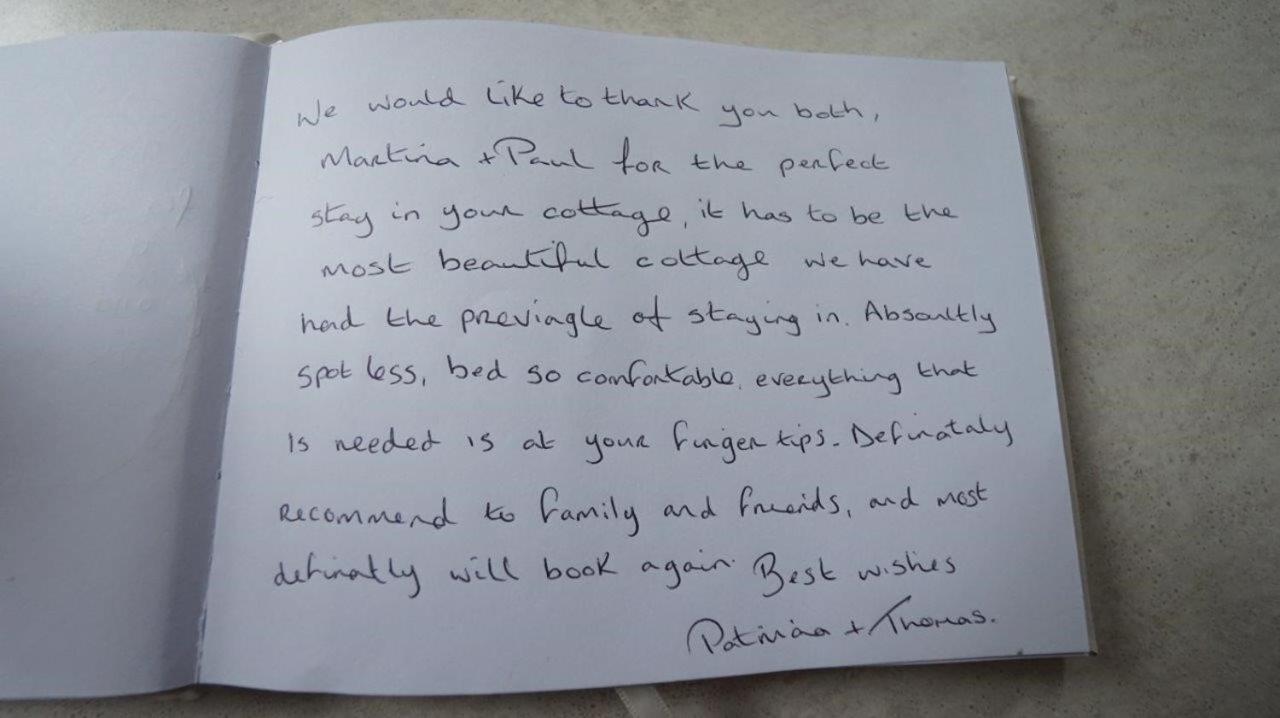 We would like to thank you both,
Martina + Paul for the perfect
stay in your cottage, it has to be the
most beautiful cottage we have
had the previagle of staying in. Absoultly
spot less, bed so comfortable, everything that
is needed is at your finger tips. Definataly
recommend to family and friends, and most
definatly will book again. Best wishes
Patricia + Thomas.